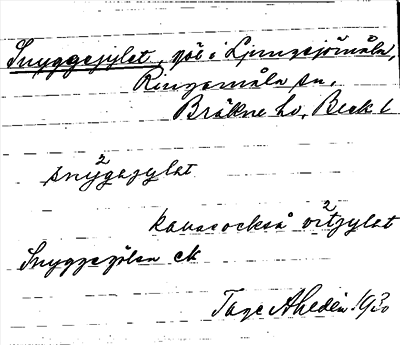 Snyggegylet, göl i Ljungsjömåla,
Ringamåla sn,
Bräkne hd, Blek l
snỳgagylet
kallas också vitgylet
Snyggegölen ek
Tage Ahldén 1930